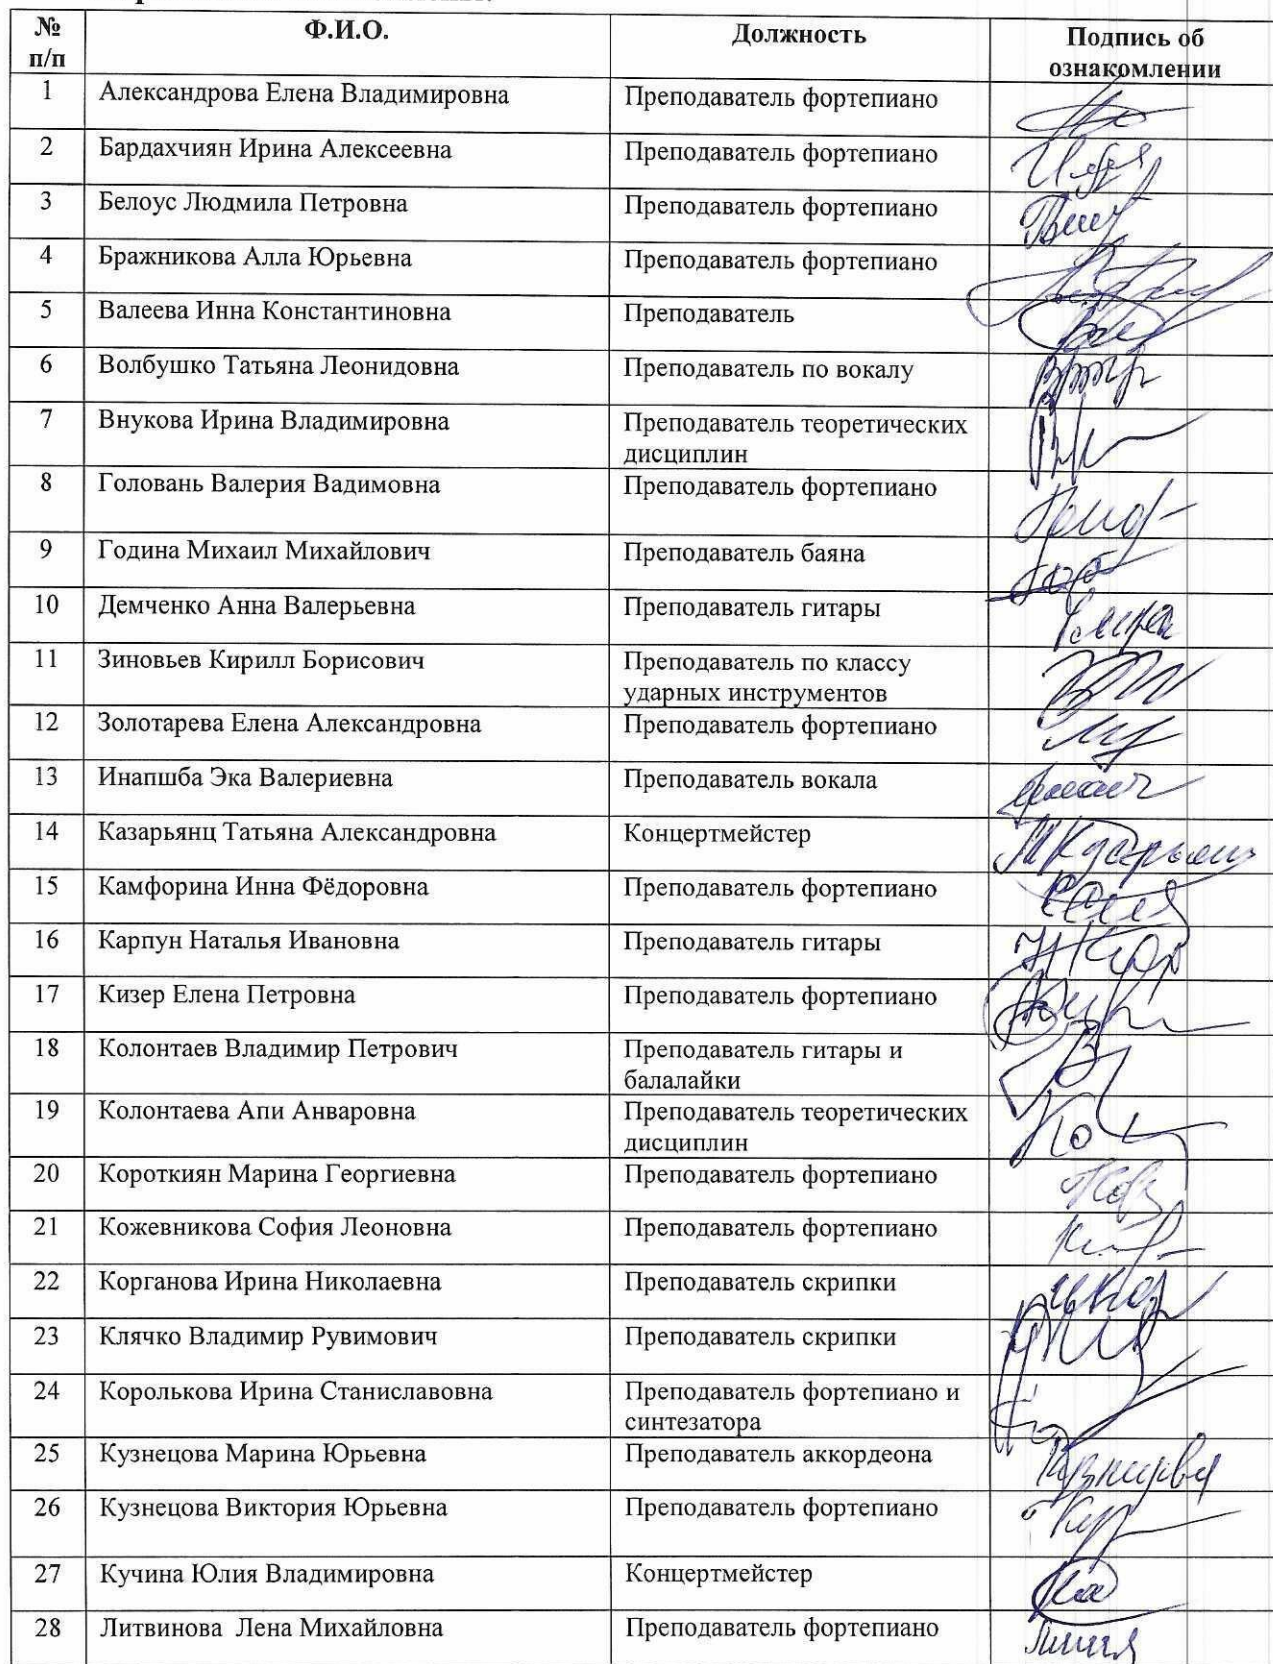 № Ф.И.О. Должность Подпись об
п/п ознакомлении
1 Александрова Елена Владимировна Преподаватель фортепиано
2 Бардахчиян Ирина Алексеевна Преподаватель фортепиано
3 Белоус Людмила Петровна Преподаватель фортепиано
4 Бражникова Алла Юрьевна Преподаватель фортепиано
5 Валеева Инна Константиновна Преподаватель
6 Волбушко Татьяна Леонидовна Преподаватель по вокалу
7 Внукова Ирина Владимировна Преподаватель теоретических
дисциплин
8 Головань Валерия Вадимовна Преподаватель фортепиано
9 Година Михаил Михайлович Преподаватель баяна
10 Демченко Анна Валерьевна Преподаватель гитары
11 Зиновьев Кирилл Борисович Преподаватель по классу
ударных инструментов
12 Золотарева Елена Александровна Преподаватель фортепиано
13 Инапшба Эка Валериевна Преподаватель вокала
14 Казарьянц Татьяна Александровна Концертмейстер
15 Камфорина Инна Фёдоровна Преподаватель фортепиано
16 Карпун Наталья Ивановна Преподаватель гитары
17 Кизер Елена Петровна Преподаватель фортепиано
18 Колонтаев Владимир Петрович Преподаватель гитары и
балалайки
19 Колонтаева Апи Анваровна Преподаватель теоретических
дисциплин
20 Короткиян Марина Георгиевна Преподаватель фортепиано
21 Кожевникова София Леоновна Преподаватель фортепиано
22 Корганова Ирина Николаевна Преподаватель скрипки
23 Клячко Владимир Рувимович Преподаватель скрипки
24 Королькова Ирина Станиславовна Преподаватель фортепиано и
синтезатора
25 Кузнецова Марина Юрьевна Преподаватель аккордеона
26 Кузнецова Виктория Юрьевна Преподаватель фортепиано
27 Кучина Юлия Владимировна Концертмейстер
28 Литвинова Лена Михайловна Преподаватель фортепиано